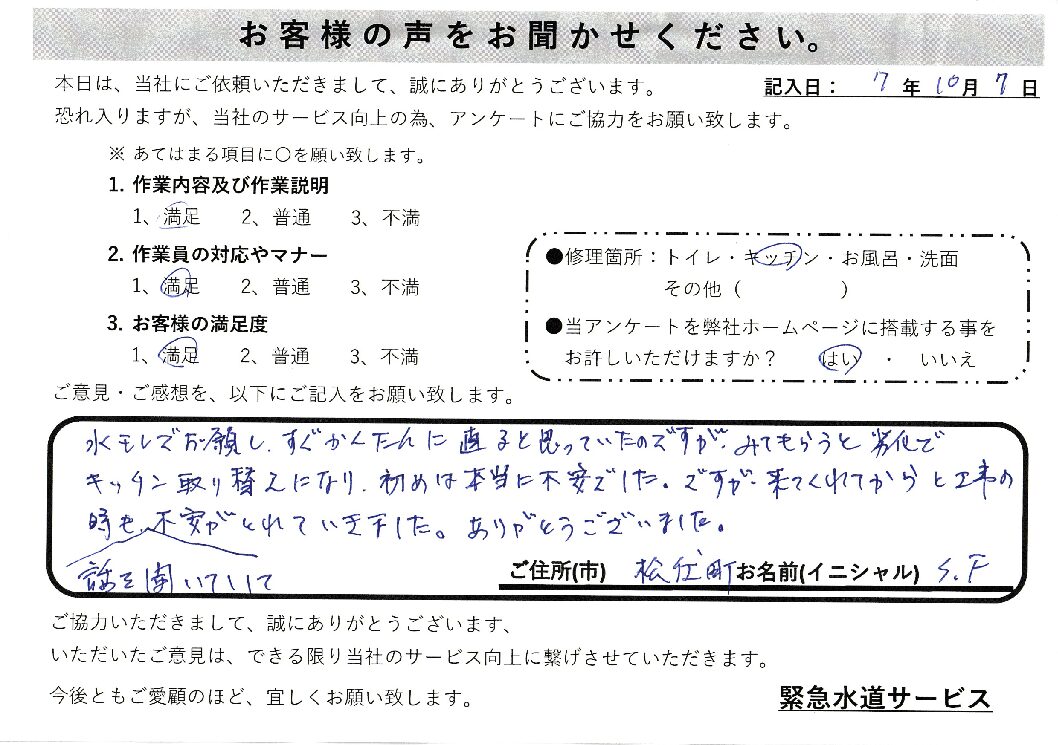 お客様の声をお聞かせください。
本日は、当社にご依頼いただきまして、誠にありがとうございます。
記入日： 7 年 10 月 7 日
恐れ入りますが、当社のサービス向上の為、アンケートにご協力をお願い致します。
※ あてはまる項目に〇を願い致します。
1. 作業内容及び作業説明
1、満足 2、普通 3、不満
2. 作業員の対応やマナー
1、満足 2、普通 3、不満
3. お客様の満足度
1、満足 2、普通 3、不満
●修理箇所：トイレ・キッチン・お風呂・洗面
その他（ ）
●当アンケートを弊社ホームページに搭載する事を
お許しいただけますか？ はい ・ いいえ
ご意見・ご感想を、以下にご記入をお願い致します。
水モレでお願いし、すぐかんたんに直ると思っていたのですが、みてもらうと劣化で
キッチン取り替えになり、初めは本当に不安でした。ですが、来てくれてからと工事の
時も、不安がとれていきました。ありがとうございました。
話を聞いていて
ご住所(市) 松任町 お名前(イニシャル) S.F
ご協力いただきまして、誠にありがとうございます、
いただいたご意見は、できる限り当社のサービス向上に繋げさせていただきます。
今後ともご愛顧のほど、宜しくお願い致します。
緊急水道サービス